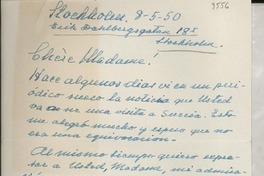 3556
Stockholm, 8-5-50
Erik Dahlbergsgatan 18⁵
Stockholm.
Chère Madame!
Hace algunos dias vi en un peri-
ódico sueco la noticia que Usted
va a una visita a Suecia. Esto
me alegró mucho y espero que no
sea una equivocación.
Al mismo tiempo quiero expre-
sar a Usted, Madame, mi admira-